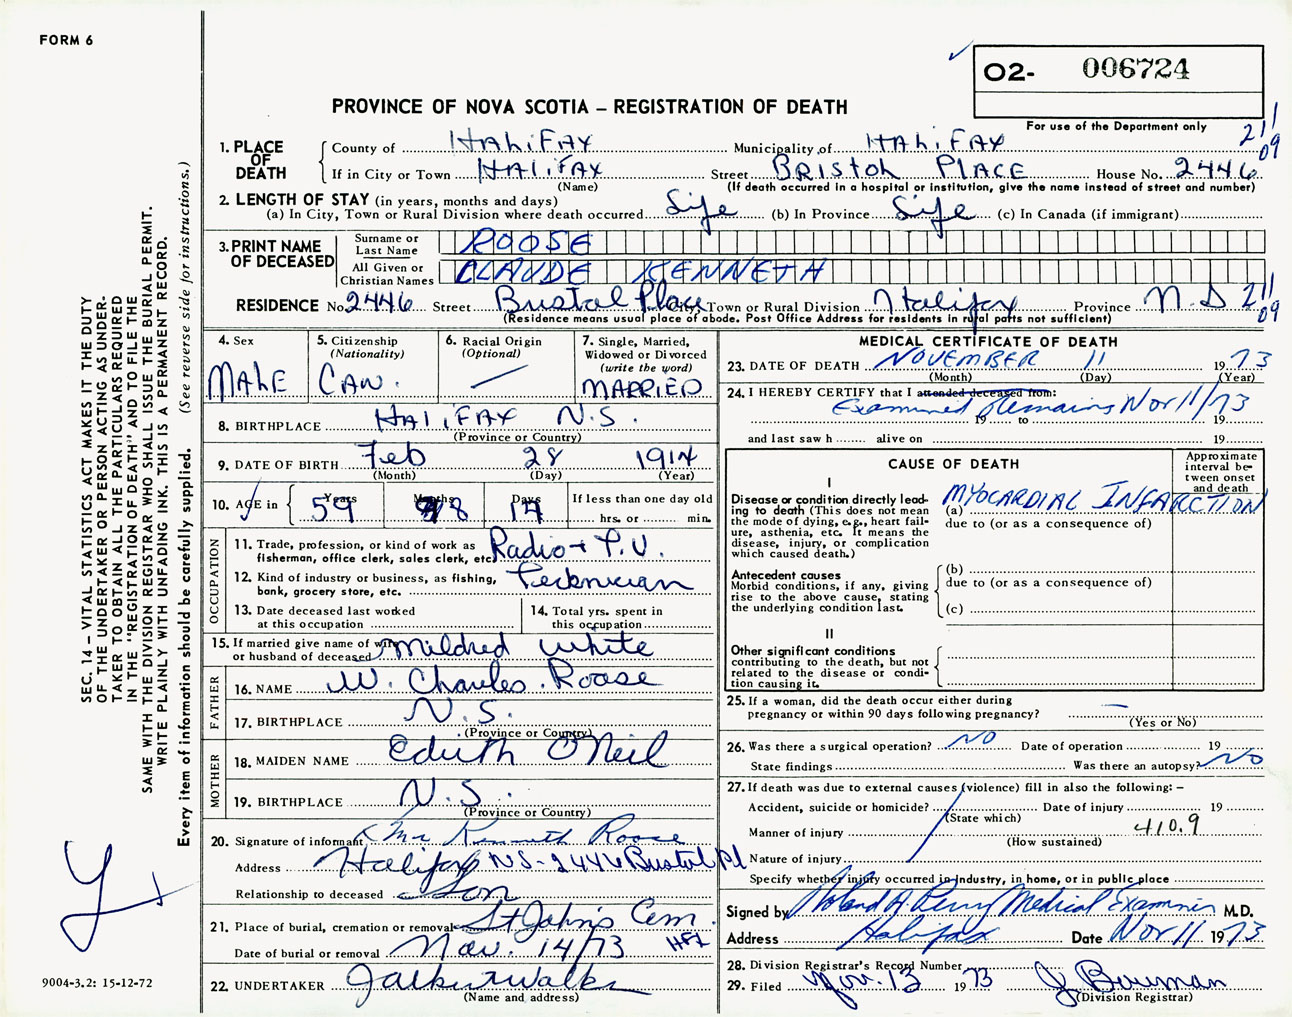 FORM 6
O2- 006724
PROVINCE OF NOVA SCOTIA – REGISTRATION OF DEATH
For use of the Department only
211
09
1. PLACE OF DEATH
County of HALIFAX Municipality of HALIFAX
If in City or Town HALIFAX Street BRISTOL PLACE House No. 2446
(Name) (If death occurred in a hospital or institution, give the name instead of street and number)
2. LENGTH OF STAY (in years, months and days)
(a) In City, Town or Rural Division where death occurred Life (b) In Province Life (c) In Canada (if immigrant)
3. PRINT NAME OF DECEASED
Surname or Last Name ROOSE
All Given or Christian Names CLAUDE KENNETH
RESIDENCE No. 2446 Street Bristol Place City, Town or Rural Division Halifax Province N.S 211
09
(Residence means usual place of abode. Post Office Address for residents in rural parts not sufficient)
4. Sex MALE
5. Citizenship (Nationality) CAN.
6. Racial Origin (Optional) —
7. Single, Married, Widowed or Divorced (write the word) MARRIED
8. BIRTHPLACE HALIFAX N.S.
(Province or Country)
9. DATE OF BIRTH Feb 28 1914
(Month) (Day) (Year)
10. AGE in Years 59 Months 8 Days 14 If less than one day old
hrs. or min.
OCCUPATION
11. Trade, profession, or kind of work as fisherman, office clerk, sales clerk, etc. Radio + T.V.
12. Kind of industry or business, as fishing, bank, grocery store, etc. Technician
13. Date deceased last worked at this occupation
14. Total yrs. spent in this occupation
15. If married give name of wife or husband of deceased Mildred White
FATHER
16. NAME W. Charles Roose
17. BIRTHPLACE N.S.
(Province or Country)
MOTHER
18. MAIDEN NAME Edith O'Neil
19. BIRTHPLACE N.S.
(Province or Country)
20. Signature of informant Mr Kenneth Roose
Address Halifax NS - 2446 Bristol Pl
Relationship to deceased Son
21. Place of burial, cremation or removal St John's Cem.
Date of burial or removal Nov. 14/73 HFX
22. UNDERTAKER
(Name and address)
MEDICAL CERTIFICATE OF DEATH
23. DATE OF DEATH NOVEMBER 11 1973
(Month) (Day) (Year)
24. I HEREBY CERTIFY that I attended deceased from:
Examined Remains Nov 11/73
19 to 19
and last saw h alive on 19
CAUSE OF DEATH
Approximate interval between onset and death
I
Disease or condition directly leading to death (This does not mean the mode of dying, e.g., heart failure, asthenia, etc. It means the disease, injury, or complication which caused death.)
(a) MYOCARDIAL INFARCTION
due to (or as a consequence of)
Antecedent causes
Morbid conditions, if any, giving rise to the above cause, stating the underlying condition last.
(b)
due to (or as a consequence of)
(c)
II
Other significant conditions
contributing to the death, but not related to the disease or condition causing it.
25. If a woman, did the death occur either during pregnancy or within 90 days following pregnancy? —
(Yes or No)
26. Was there a surgical operation? NO Date of operation 19
State findings Was there an autopsy? NO
27. If death was due to external causes (violence) fill in also the following: –
Accident, suicide or homicide? Date of injury 19
(State which)
Manner of injury 410.9
(How sustained)
Nature of injury
Specify whether injury occurred in Industry, in home, or in public place
Signed by Roland A. Perry Medical Examiner M.D.
Address Halifax Date Nov 11 1973
28. Division Registrar's Record Number
29. Filed Nov. 13 1973 J Bowman
(Division Registrar)
SEC. 14 – VITAL STATISTICS ACT MAKES IT THE DUTY
OF THE UNDERTAKER OR PERSON ACTING AS UNDER-
TAKER TO OBTAIN ALL THE PARTICULARS REQUIRED
IN THE "REGISTRATION OF DEATH" AND TO FILE THE
SAME WITH THE DIVISION REGISTRAR WHO SHALL ISSUE THE BURIAL PERMIT.
WRITE PLAINLY WITH UNFADING INK. THIS IS A PERMANENT RECORD.
Every item of information should be carefully supplied. (See reverse side for instructions.)
9004-3.2: 15-12-72